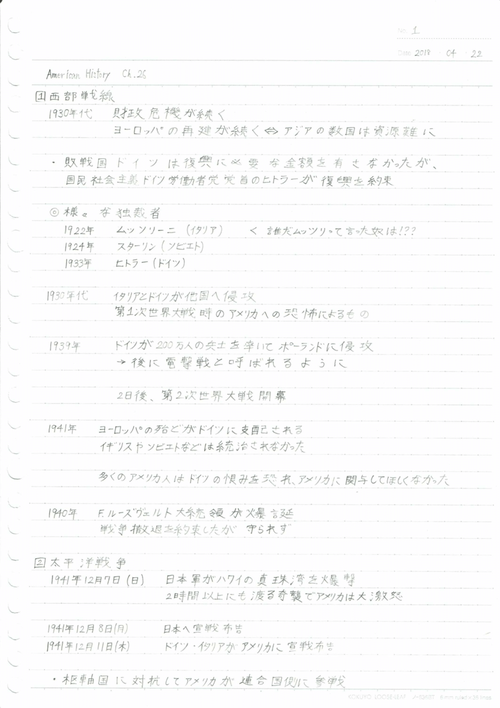 No. 1
Date 2018 04 22
American History Ch.26
1 西部戦線
1930年代 財政危機が続く
ヨーロッパの再建が続く ⇔ アジアの数国は資源難に
・敗戦国ドイツは復興に必要な金額を有さなかったが、
国民社会主義ドイツ労働者党党首のヒトラーが復興を約束
◎様々な独裁者
1922年 ムッソリーニ (イタリア) < 誰だムッツリって言った奴は!??
1924年 スターリン (ソビエト)
1933年 ヒトラー (ドイツ)
1930年代 イタリアとドイツが他国へ侵攻
第1次世界大戦時のアメリカへの恐怖によるもの
1939年 ドイツが200万人の兵士を率いてポーランドに侵攻
→ 後に電撃戦と呼ばれるように
2日後、第2次世界大戦開幕
1941年 ヨーロッパの殆どがドイツに支配される
イギリスやソビエトなどは統治されなかった
多くのアメリカ人はドイツの恨みを恐れ、アメリカに関与してほしくなかった
1940年 F.ルーズヴェルト大統領が爆誕
戦争撤退を約束したが守られず
2 太平洋戦争
1941年12月7日(日) 日本軍がハワイの真珠湾を爆撃
2時間以上にも渡る奇襲でアメリカは大激怒
1941年12月8日(月) 日本へ宣戦布告
1941年12月11日(木) ドイツ・イタリアがアメリカに宣戦布告
・枢軸国に対抗してアメリカが連合国側に参戦